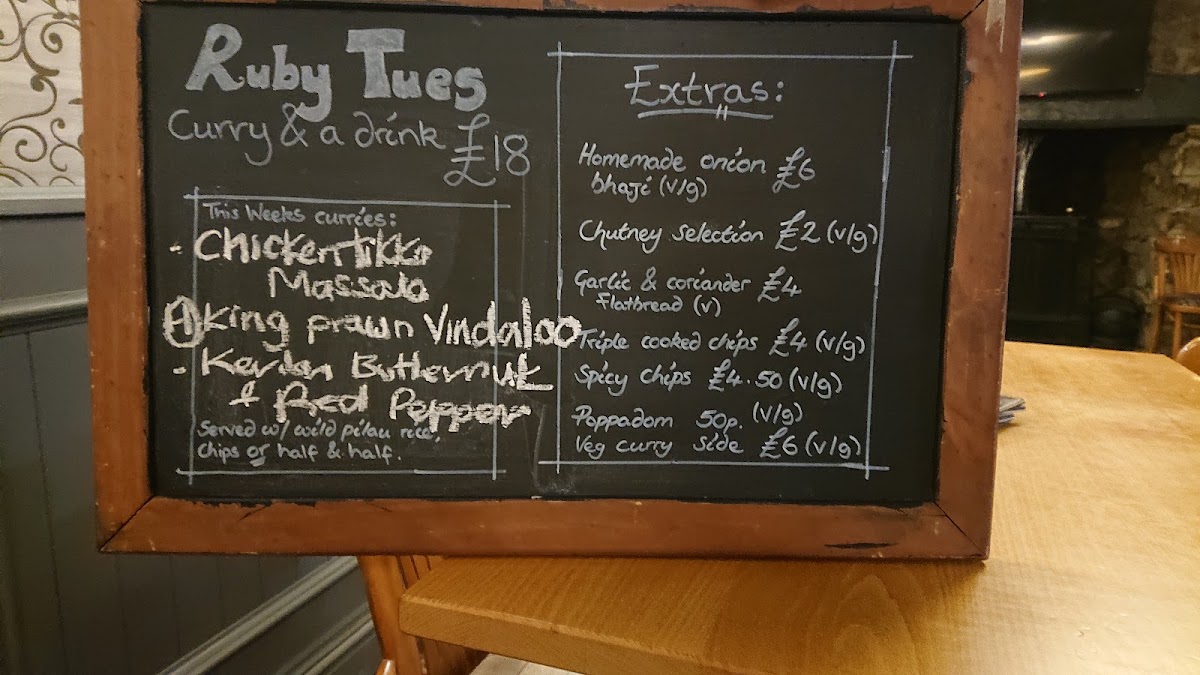 Ruby Tues
Curry & a drink £18
This Weeks curries:
- Chicken tikka
Massala
① King prawn Vindaloo
- Keralan Butternut
& Red Pepper
Served w/ wild pilau rice,
chips or half & half.
Extras:
Homemade onion £6
bhaji (v/g)
Chutney selection £2 (v/g)
Garlic & coriander £4
flatbread (v)
Triple cooked chips £4 (v/g)
Spicy chips £4.50 (v/g)
Poppadom 50p. (v/g)
Veg curry side £6 (v/g)